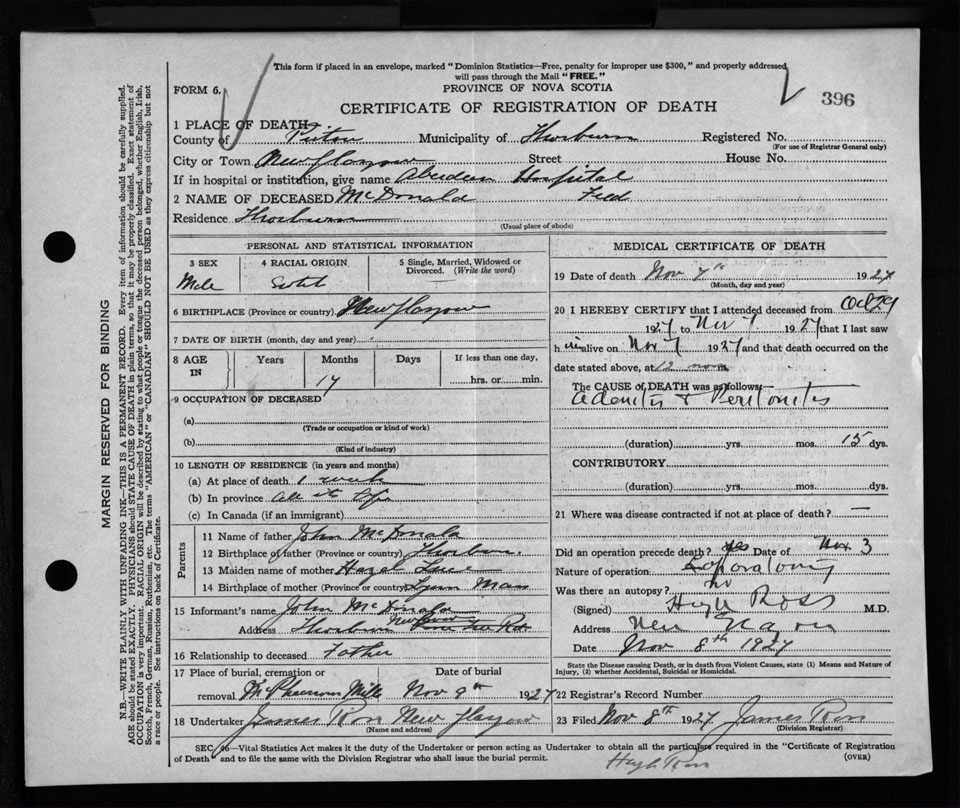 This form if placed in an envelope, marked "Dominion Statistics—Free, penalty for improper use $300," and properly addressed
will pass through the Mail "FREE."
FORM 6.
PROVINCE OF NOVA SCOTIA
CERTIFICATE OF REGISTRATION OF DEATH
396
1 PLACE OF DEATH
County of Pictou Municipality of Thorburn Registered No.
(For use of Registrar General only)
City or Town New Glasgow Street House No.
If in hospital or institution, give name Aberdeen Hospital
2 NAME OF DECEASED McDonald
Residence Thorburn
(Usual place of abode)
PERSONAL AND STATISTICAL INFORMATION
3 SEX 4 RACIAL ORIGIN 5 Single, Married, Widowed or Divorced. (Write the word)
Male
6 BIRTHPLACE (Province or country) New Glasgow
7 DATE OF BIRTH (month, day and year)
8 AGE IN Years Months Days If less than one day,
17 hrs. or min.
9 OCCUPATION OF DECEASED
(a)
(Trade or occupation or kind of work)
(b)
(Kind of industry)
10 LENGTH OF RESIDENCE (in years and months)
(a) At place of death 1 week
(b) In province All its life
(c) In Canada (if an immigrant)
Parents
11 Name of father John McDonald
12 Birthplace of father (Province or country) Thorburn.
13 Maiden name of mother Hazel
14 Birthplace of mother (Province or country) Lynn Mass
15 Informant's name John McDonald
Address Thorburn
16 Relationship to deceased Father
17 Place of burial, cremation or Date of burial
removal McPherson Mills Nov 8th 1927
18 Undertaker James Ross New Glasgow
(Name and address)
MEDICAL CERTIFICATE OF DEATH
19 Date of death Nov 7th 1927
(Month, day and year)
20 I HEREBY CERTIFY that I attended deceased from Oct 29
1927 to Nov 7 1927 that I last saw
him alive on Nov 7 1927 and that death occurred on the
date stated above, at 12 noon
The CAUSE of DEATH was as follows:
Adenitis & Peritonitis
(duration) yrs. mos. 15 dys.
CONTRIBUTORY
(duration) yrs. mos. dys.
21 Where was disease contracted if not at place of death? —
Did an operation precede death? yes Date of Nov 3
Nature of operation Laparotomy
Was there an autopsy? no
(Signed) Hugh Ross M.D.
Address New Glasgow
Date Nov 8th 1927
State the Disease causing Death, or in death from Violent Causes, state (1) Means and Nature of
Injury, (2) whether Accidental, Suicidal or Homicidal.
22 Registrar's Record Number
23 Filed Nov 8th 1927 James Ross
(Division Registrar)
SEC. 46—Vital Statistics Act makes it the duty of the Undertaker or person acting as Undertaker to obtain all the particulars required in the "Certificate of Registration
of Death" and to file the same with the Division Registrar who shall issue the burial permit.
(OVER)
Hugh Ross
MARGIN RESERVED FOR BINDING
N.B.—WRITE PLAINLY WITH UNFADING INK—THIS IS A PERMANENT RECORD. Every item of information should be carefully supplied.
AGE should be stated EXACTLY. PHYSICIANS should STATE CAUSE OF DEATH in plain terms, so that it may be properly classified. Exact statement of
OCCUPATION is very important. RACIAL ORIGIN will be described by stating to what people or tongue the deceased person belonged, whether English, Irish,
Scotch, French, German, Russian, Ruthenian, etc. The terms "AMERICAN" or "CANADIAN" SHOULD NOT BE USED as they express citizenship but not
a race or people. See instructions on back of Certificate.